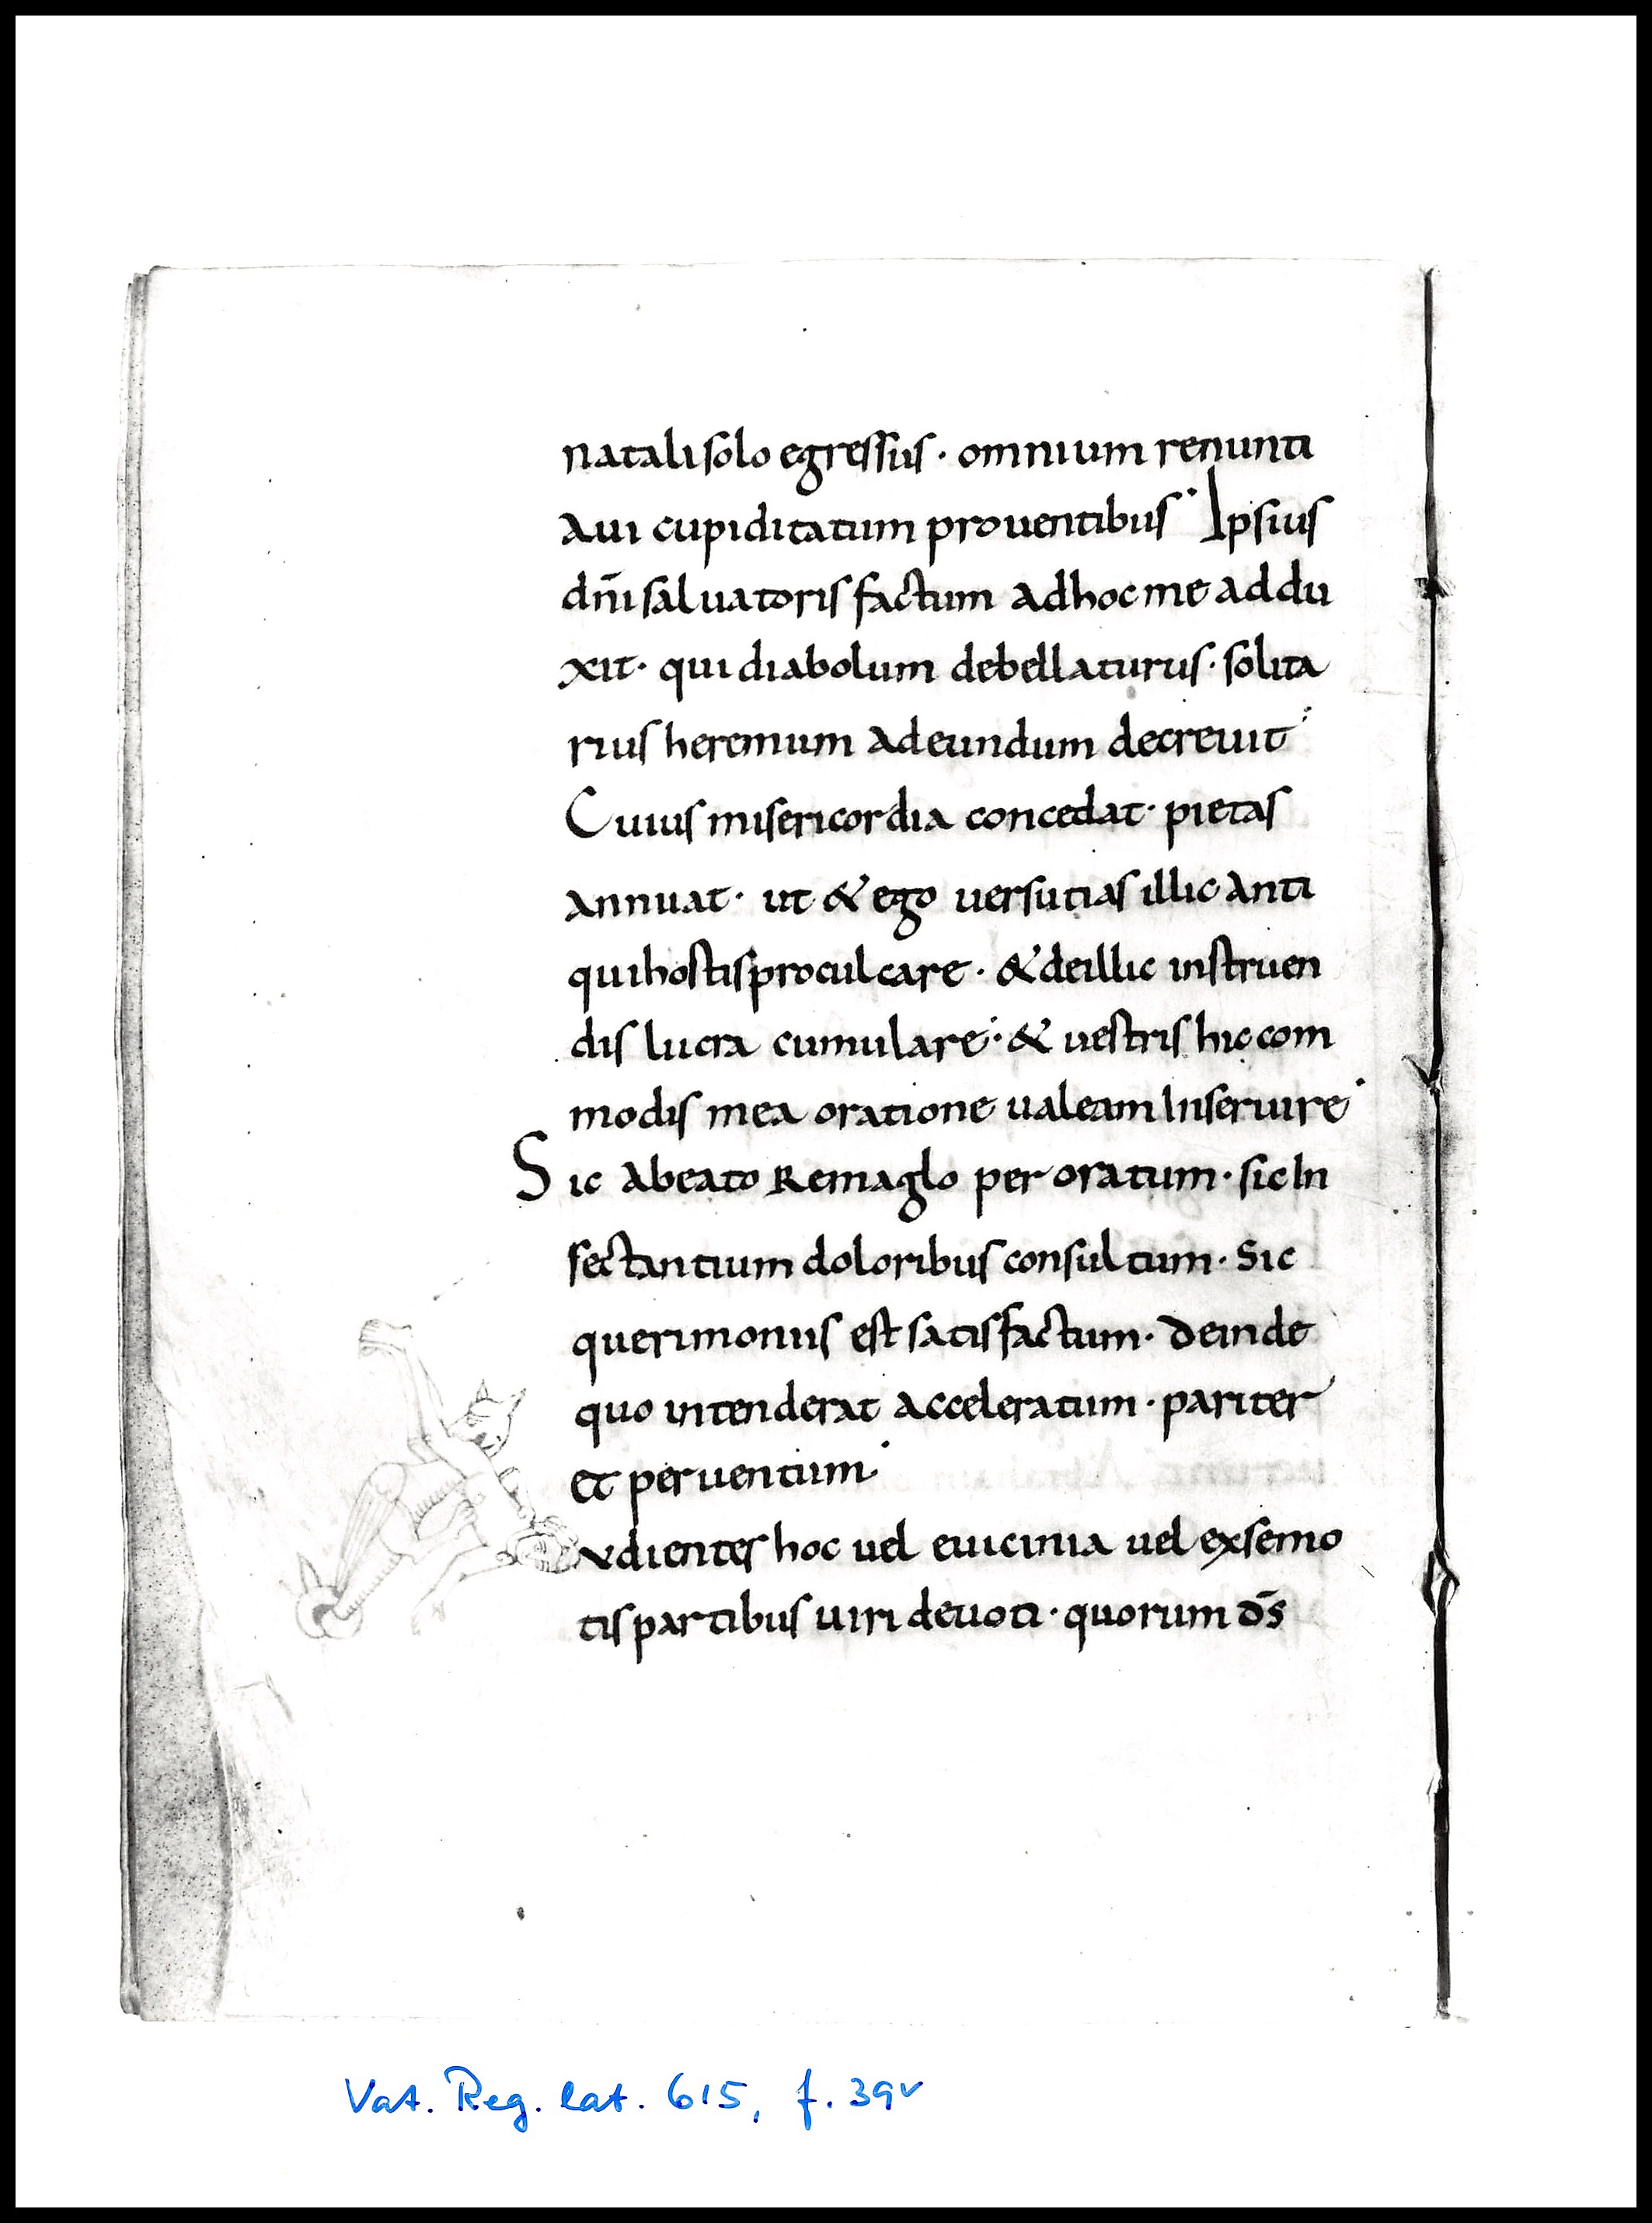 natali solo egressus · omnium renunti
aui cupiditatum prouentibus · Ipsius
dn̄i saluatoris factum ad hoc me addu
xit · qui diabolum debellaturus · solita
rius heremum adeundum decreuit ·
Cuius misericordia concedat · pietas
annuat · ut & ego uersutias illic anti
qui hostis proculcare · & de illic instruen
dis lucra cumulare · & uestris hic com
modis mea oratione ualeam Inseruire ·
Sic a beato Remaglo peroratum · sic In
sectantium doloribus consultum · Sic
querimoniis est satisfactum · deinde
quo intenderat acceleratum · pariter
et peruentum ·
udientes hoc uel e uicinia uel ex semo
tis partibus uiri deuoti · quorum ds̄
Vat. Reg. lat. 615, f. 39v